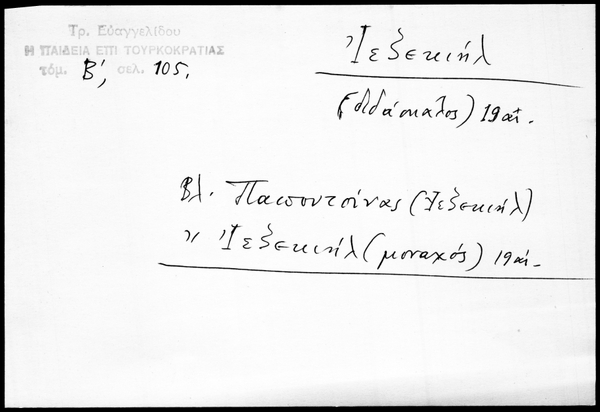 Τρ. Εὐαγγελίδου
Η ΠΑΙΔΕΙΑ ΕΠΙ ΤΟΥΡΚΟΚΡΑΤΙΑΣ
τόμ. Β΄, σελ. 105.
Ἰεζεκιήλ
(διδάσκαλος) 19 αἰ.
Βλ. Παπουτσίνας (Ἰεζεκιήλ)
" Ἰεζεκιήλ (μοναχός) 19 αἰ.